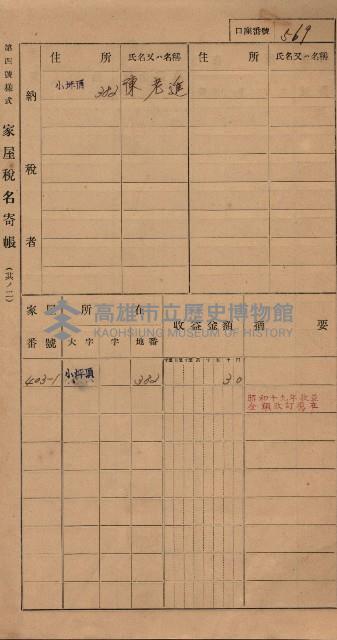 口座番號 569
第四號樣式
家屋稅名寄帳
(其ノ二)
納稅者
住所 氏名又ハ名稱 住所 氏名又ハ名稱
小坪頂 382 陳老進
高雄市立歷史博物館
KAOHSIUNG MUSEUM OF HISTORY
家屋所在 收益金額 摘要
番號 大字 字 地番
403-1 小坪頂 382 30
昭和十九年收益
金額改訂